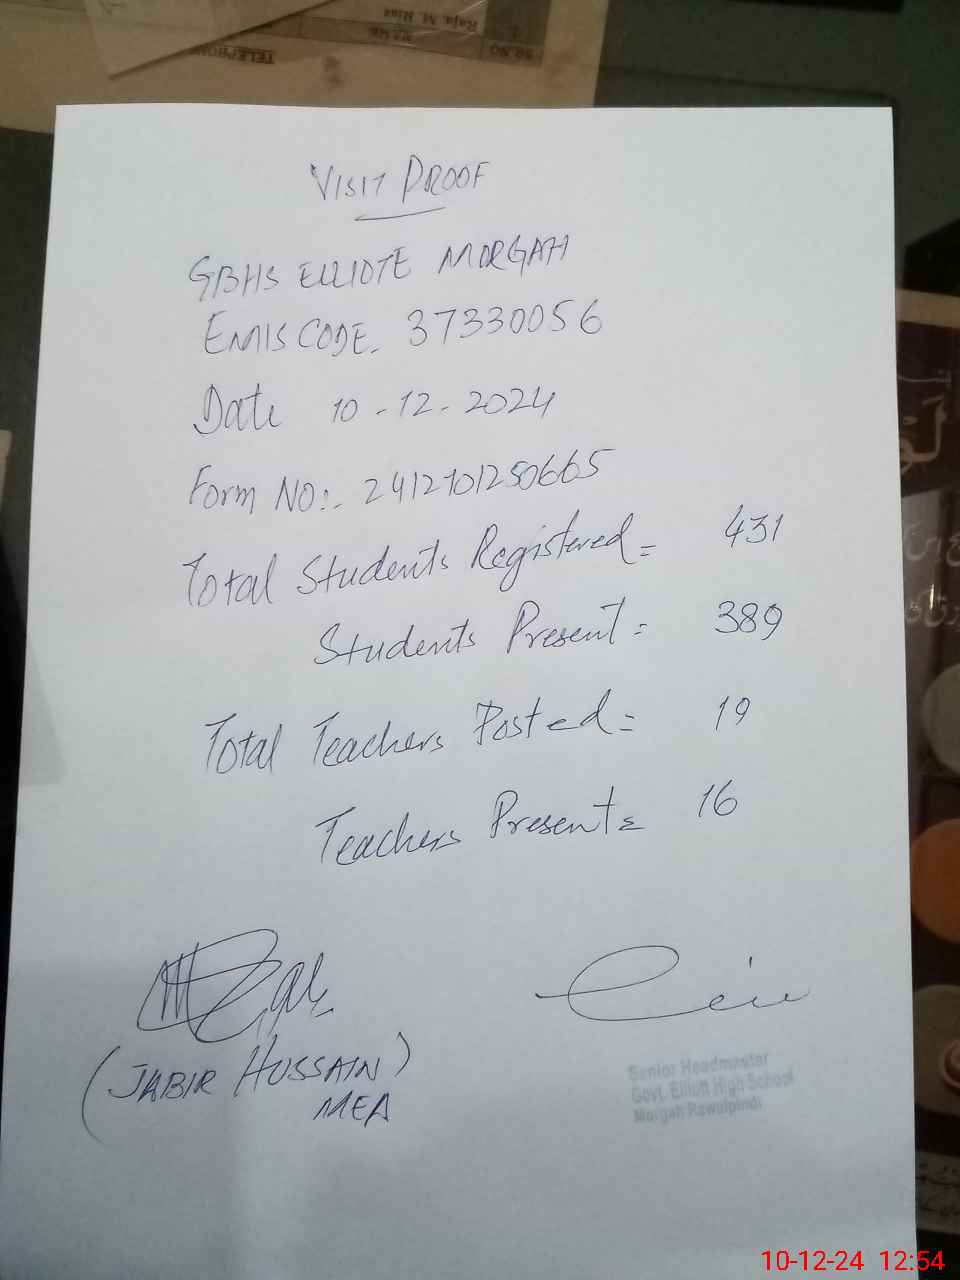 TELEPHONE
SR.NO
NAME
Raja. M. Riaz
VISIT PROOF
GBHS ELLIOTE MORGAH
EMIS CODE. 37330056
Date 10-12-2024
Form NO:. 2412101250665
Total Students Registered = 431
Students Present = 389
Total Teachers Posted = 19
Teachers Present = 16
(JABIR HUSSAIN)
MEA
Senior Headmaster
Govt. Elliott High School
Morgah Rawalpindi
10-12-24 12:54